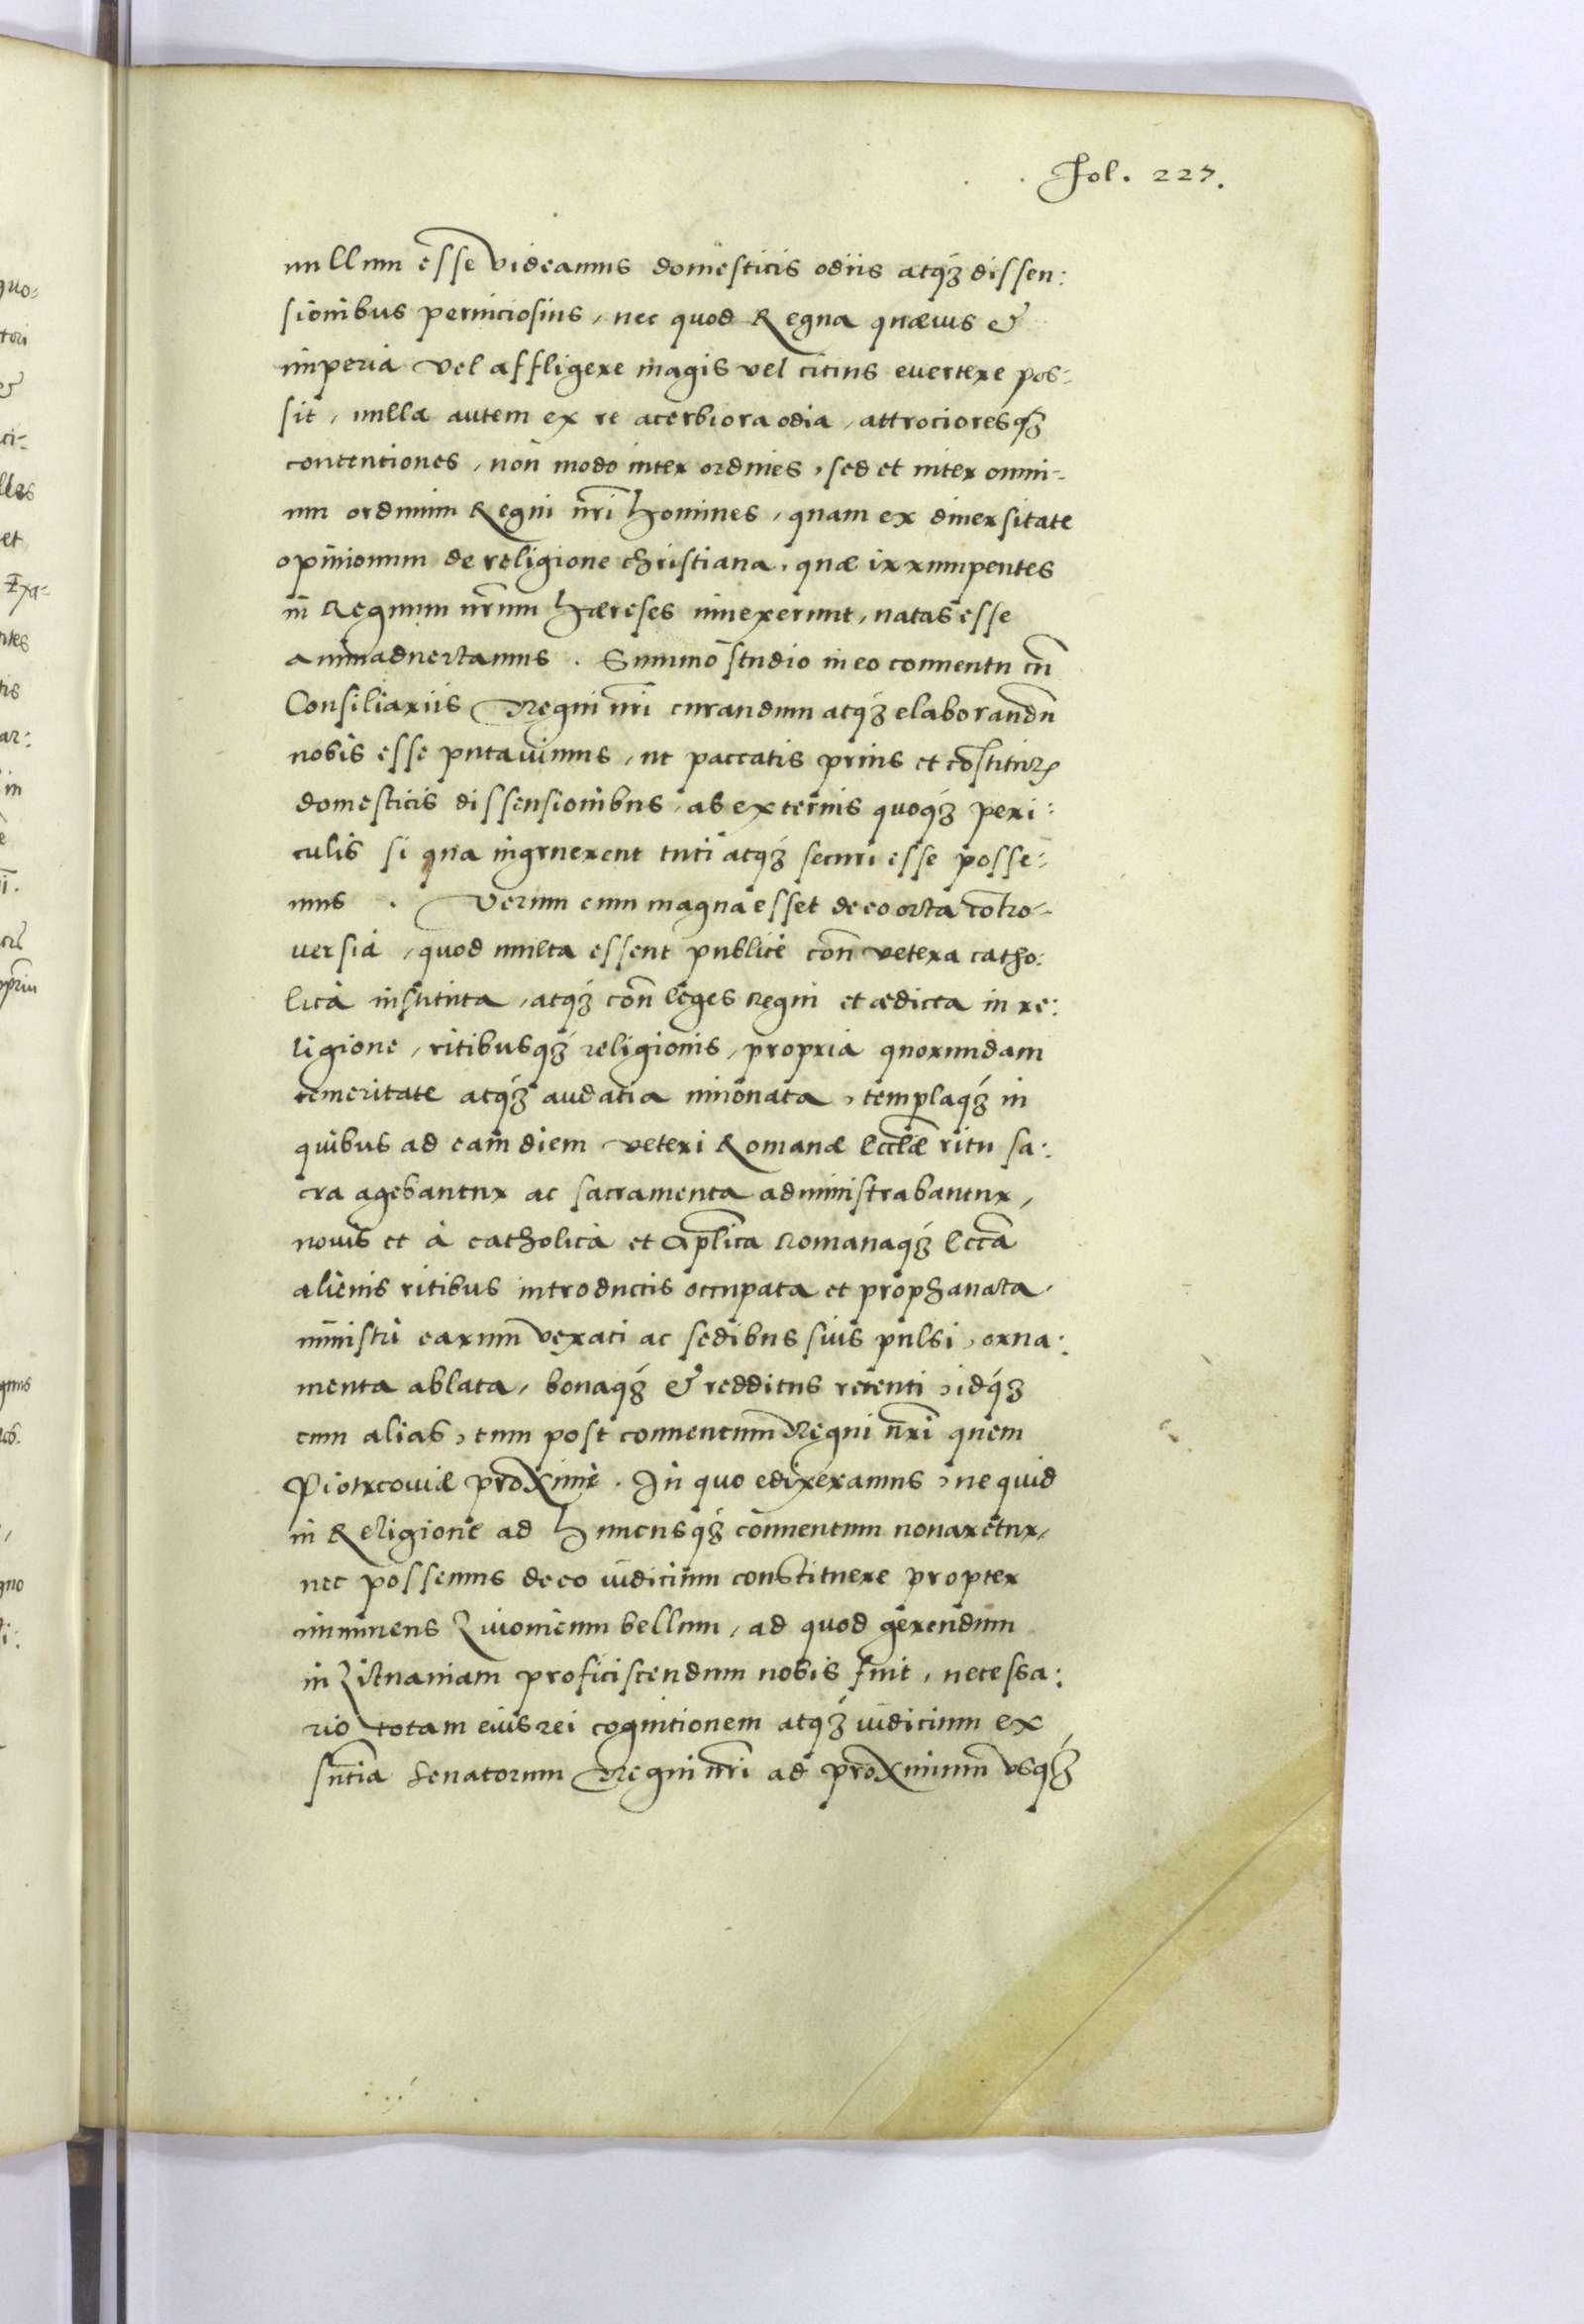 Fol. 227.
nullum esse videamus domesticis odiis atq́ꝫ dissen:
sionibus perniciosius, nec quod Regna quævis &
imperia vel affligere magis vel citius evertere pos=
sit, nulla autem ex re acerbiora odia, attrocioresq́ꝫ
contentiones, non modo inter ordines, sed et inter omni-
um ordinum Regni nr̃i homines, quam ex diuersitate
opinionum de religione christiana, quæ irrumpentes
in Regnum nr̃um hæreses inuexerunt, natas esse
animaduertamus. Summo studio in eo conuentu cũ
Consiliariis Regni nr̃i curandum atq́ꝫ elaborandũ
nobis esse putavimus, ut paccatis prius et cõstitutis
domesticis dissensionibus, ab externis quoq́ꝫ peri:
culis si qua ingruerent tuti atq́ꝫ securi esse posse:
mus. Verum cum magna esset de eo orta cõtro-
versia, quod multa essent publicè coñ vetera catho:
lica instituta, atq́ꝫ coñ leges Regni et ædicta in re:
ligione, ritibusq́ꝫ religionis, propria quorundam
temeritate atq́ꝫ audatia innouata, templaq́ꝫ in
quibus ad eam diem veteri Romanæ Eccl̃æ ritu sa:
cra agebantur ac sacramenta administrabantur,
novis et à catholica et Apl̃ica Romanaq́ꝫ Ecc̃a
alienis ritibus introductis occupata et prophanata,
ministri earum vexati ac sedibus suis pulsi, orna:
menta ablata, bonaq́ꝫ & redditus retenti, idq́ꝫ
cum alias, tum post conuentum Regni nr̃i quem
Piotrcouiæ proximè. In quo edixeramus, ne quid
in Religione ad huncusq́ꝫ conuentum nouaretur,
nec possemus de eo iudicium constituere propter
imminens Liuonicum bellum, ad quod gerendum
in Lituaniam proficiscendum nobis fuit, necessa:
rio totam eius rei cognitionem atq́ꝫ iudicium ex
sñtia Senatorum Regni nr̃i ad proximum vsq́ꝫ